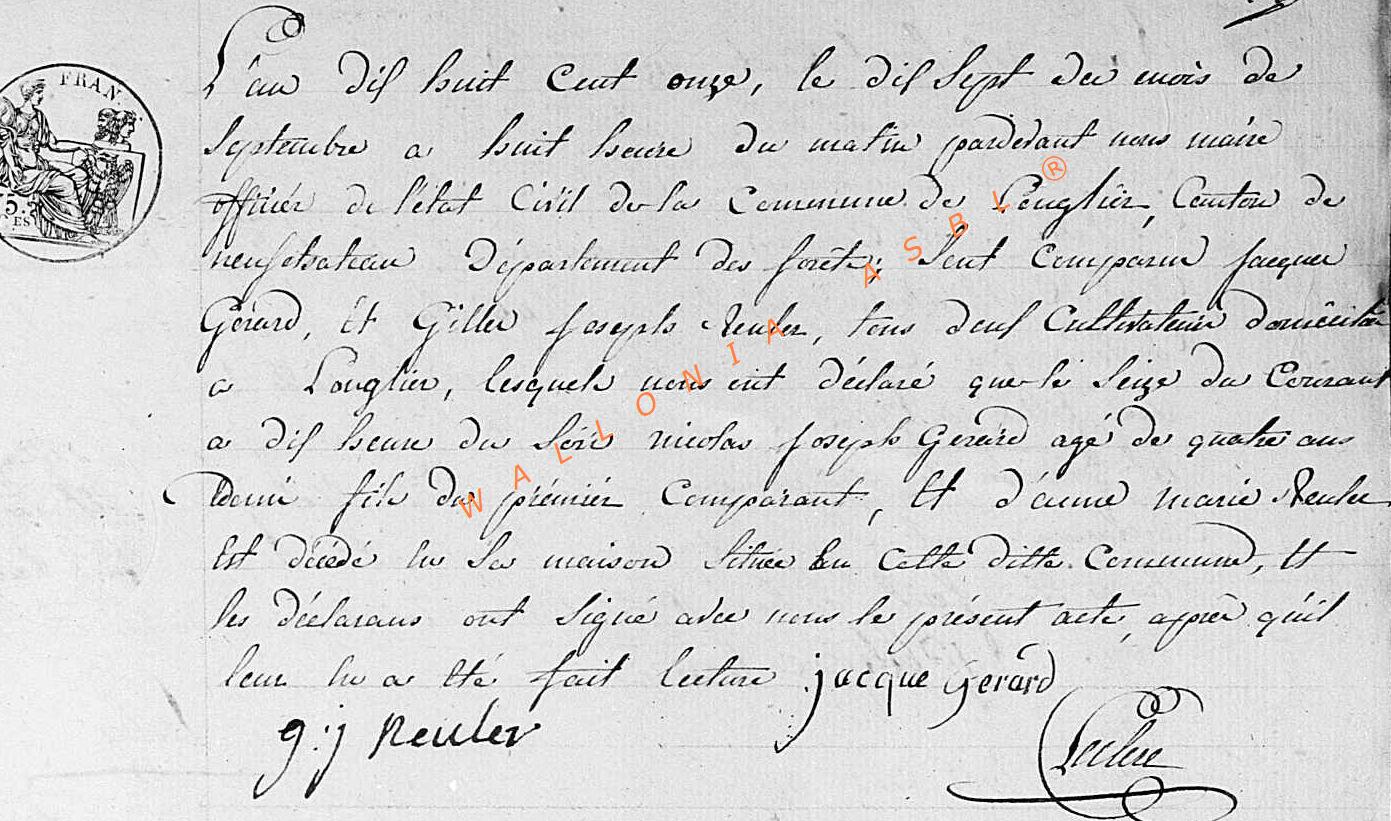 FRAN.
75.
CES
L'an dix huit Cent onze, le dix Sept du mois de
Septembre a huit heure du matin pardevant nous maire
officier de l'état Civil de la Commune de Longlier, Canton de
neufchateau Département des forêts; Sont Comparu jacque
Gérard, Et Gille joseph Reuler, tous deux Cultivateur domicilié
a Longlier, lesquels nous ont déclaré que le Seize du Courant
a dix heure du Soire nicolas joseph Gerard agé de quatre ans
demi fils du prémiér Comparant, Et d'anne marie Reuler
Est décédé en Sa maison Située en Cette ditte Commune, Et
les déclarans ont Signé avec nous le présent acte, après qu'il
leur en a Eté fait lecture jacque Gerard
g:j Reuler
Leclere
WALLONIA ASBL ®